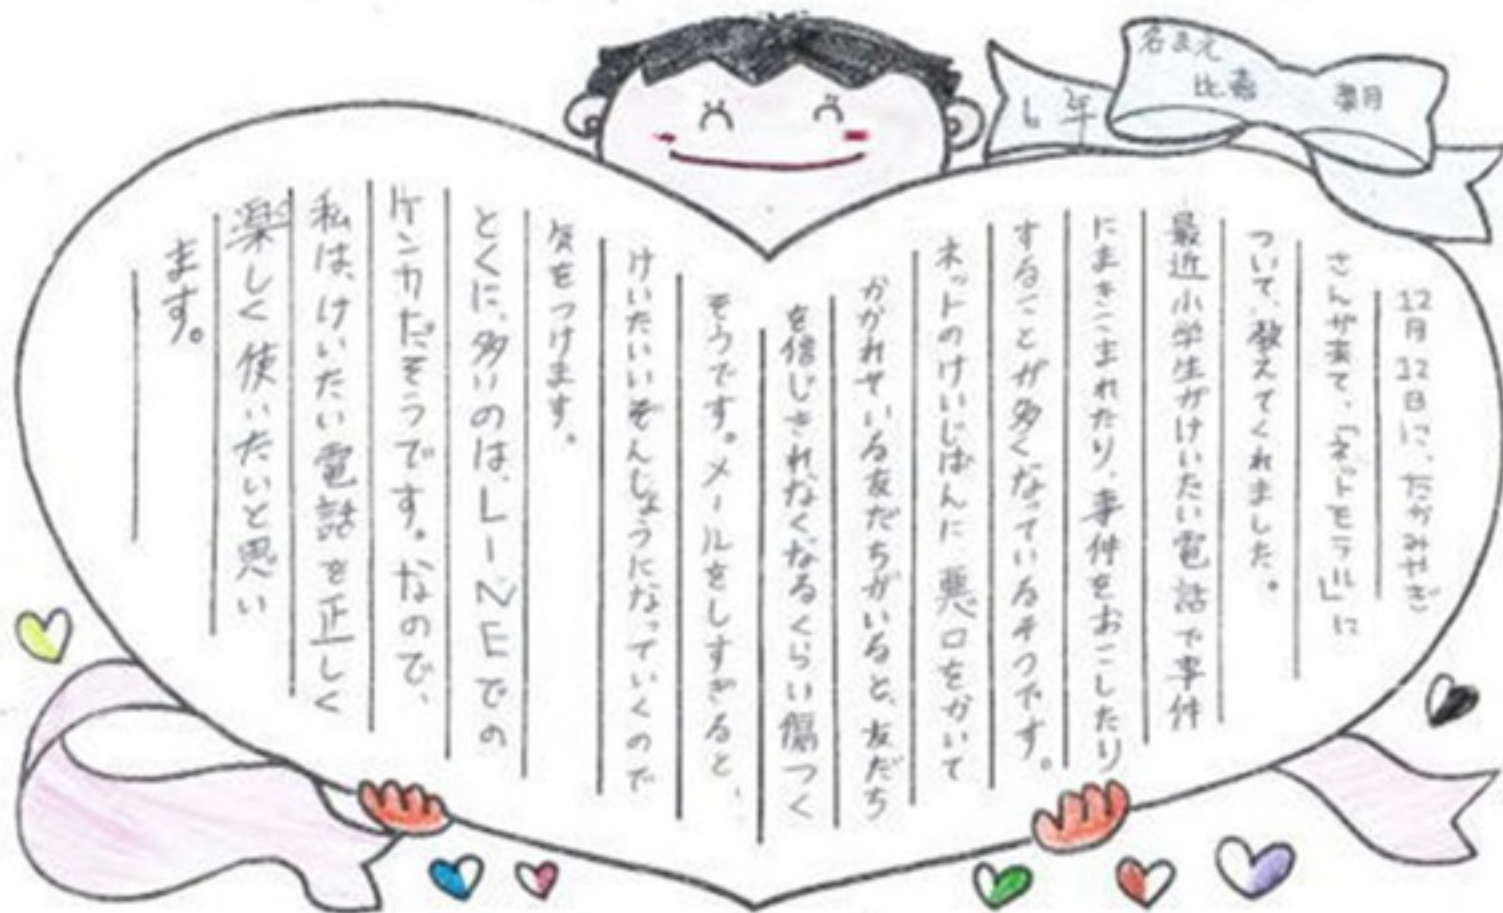 名まえ
比嘉 葉月
6年
12月12日に、たかみやぎ
さんが来て、「ネットモラル」に
ついて、教えてくれました。
最近小学生がけいたい電話で事件
にまきこまれたり、事件をおこしたり
することが多くなっているそうです。
ネットのけいじばんに悪口をかいて
かかれている友だちがいると、友だち
を信じきれなくなるくらい傷つく
そうです。メールをしすぎると、
けいたいいぞんしょうになっていくので
気をつけます。
とくに、多いのは、LINEでの
ケンカだそうです。なので、
私は、けいたい電話を正しく
楽しく使いたいと思い
ます。